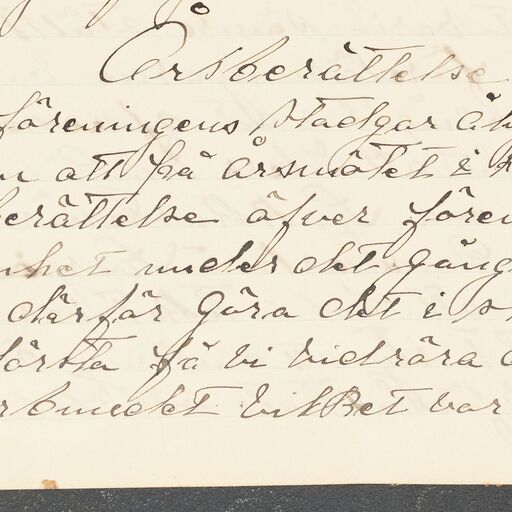 Årsberättelse
föreningens stadgar å
att på årsmötet i
erättelse öfver fören
het under det gång
därför göra det i s
första få vi vidröra
rbundet vilket var